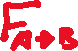 F A→B